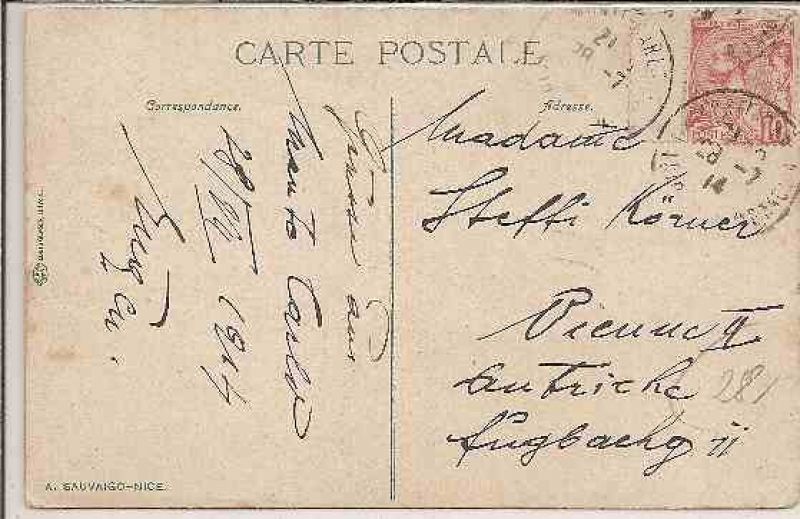 CARTE POSTALE
Correspondance.
Adresse.
Grüsse aus
Monte Carlo
28/VII 1914
Madame
Steffi Körner
Vienne II
Autriche
281
Fugbachg 11
10
14
A. SAUVAIGO-NICE.